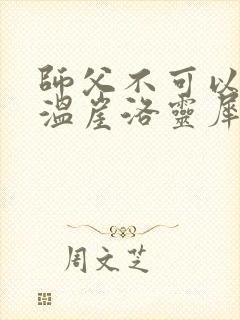 師父不可以
溫崖洛靈犀
周文芝